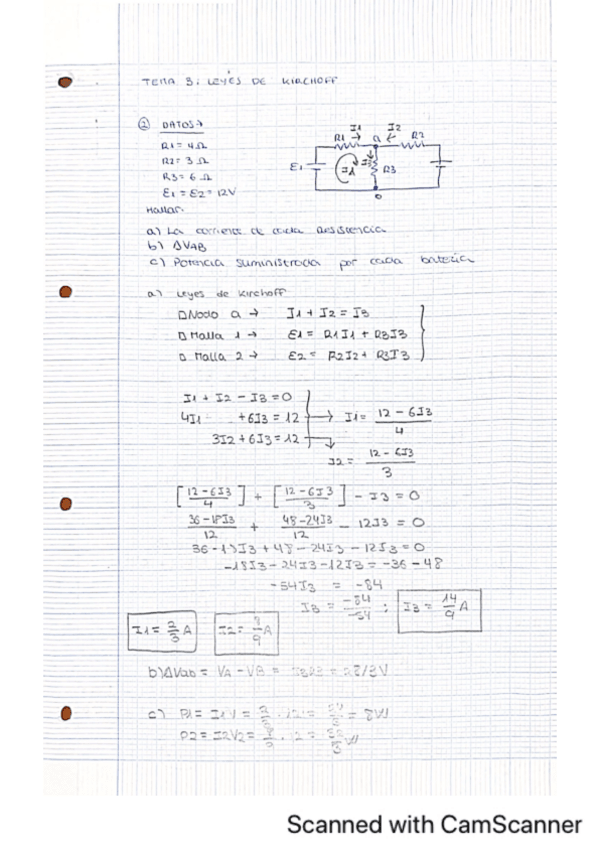 TEMA 3: LEYES DE KIRCHOFF
② DATOS→
R1 = 4Ω
R2 = 3Ω
R3 = 6Ω
ε1 = ε2 = 12V
Hallar.
I1 I2
R1 a R2
ε1 I1 I3 R3
a) La corriente de cada resistencia
b) ΔVAB
c) Potencia suministrada por cada batería
a) Leyes de Kirchoff
Nodo a → I1 + I2 = I3
Malla 1 → ε1 = R1I1 + R3I3
Malla 2 → ε2 = R2I2 + R3I3
I1 + I2 - I3 = 0
4I1 + 6I3 = 12 → I1 = 12 - 6I3 / 4
3I2 + 6I3 = 12
I2 = 12 - 6I3 / 3
[12-6I3 / 4] + [12-6I3 / 3] - I3 = 0
36-18I3 / 12 + 48-24I3 / 12 - 12I3 = 0
36-18I3 + 48 - 24I3 - 12I3 = 0
-18I3 - 24I3 - 12I3 = -36 - 48
-54I3 = -84
I3 = -84 / -54 ; I3 = 14/9 A
I1 = 2/3 A I2 = 8/9 A
b) ΔVab = VA - VB = I3R3 = 28/3V
c) P1 = I1V = 2/3 · 12 = = 8W
P2 = I2V2 = 32/3 W
Scanned with CamScanner